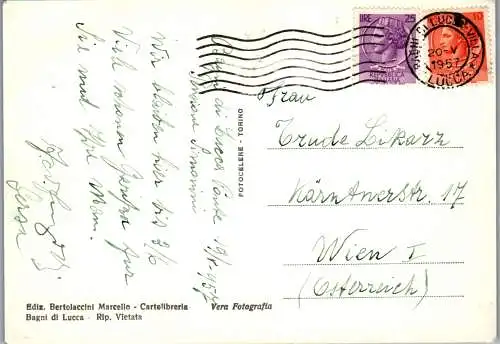 LIRE 25
10
BAGNI DI LUCCA VILLA
20-V
1957
LUCCA
Bagni di Lucca Ponte 19/V 1957
Pensione
Wir bleiben hier bis 2/6
Viele schönen Grüße für
Sie und Ihre Mam.
Frau
Trude Likarz
Kärntnerstr. 17
Wien I
(Österreich)
FOTOCELERE - TORINO
Ediz. Bertolaccini Marcello - Cartolibreria
Bagni di Lucca - Rip. Vietata
Vera Fotografia